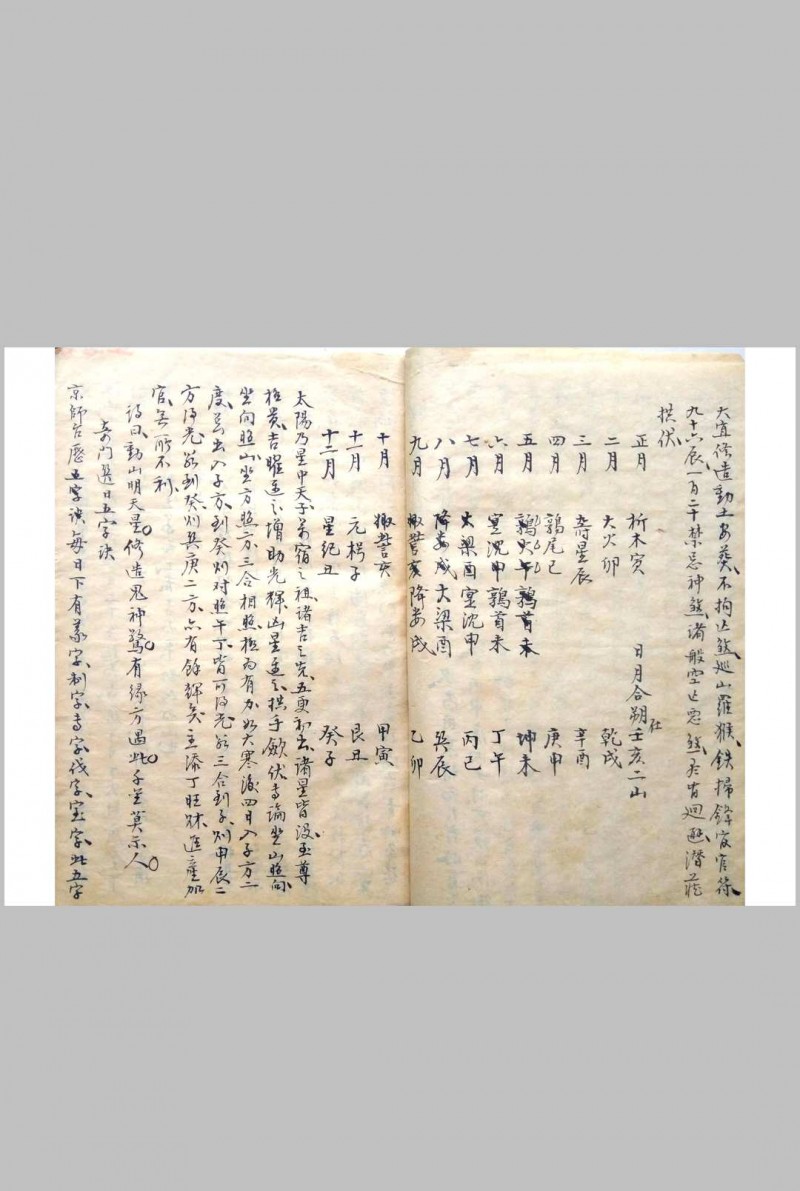 大宜修造動土安葬不拘此煞巡山羅猴鉄掃鋒官官符
九十六辰一百二十禁忌神煞諸般空亡惡煞盡皆迴避潛藏
拱伏
日月合朔壬亥二山
正月 析木寅
二月 大火卯 乾戌
三月 壽星辰 辛酉
四月 鶉尾巳 庚申
五月 鶉火午鶉首未 坤未
六月 寔沈申鶉首未 丁午
七月 大梁酉寔沈申 丙巳
八月 降婁戌大梁酉 巽辰
九月 娵訾亥降婁戌 乙卯
十月 娵訾亥 甲寅
十一月 元枵子 艮丑
十二月 星紀丑 癸子
太陽乃星中天子萬宿之祖諸吉之先五更初出諸星皆沒至尊
極貴吉曜逢之增助光輝凶星逢之拱手歛伏專論坐山照向
坐向照山坐方照方三合相照極為有力如大寒後四日入子方二
度若出入子方到癸則对照午丁皆可得光若三合到子則申辰二
方得光若到癸則巽庚二方亦有餘輝矣主添丁旺財進產加
官無所不利
詩曰動山明天星修造鬼神驚有緣方遇此千金莫示人
奇门選日五字訣
京師台歷五字訣每日下有義字制字專字伐字宝字此五字